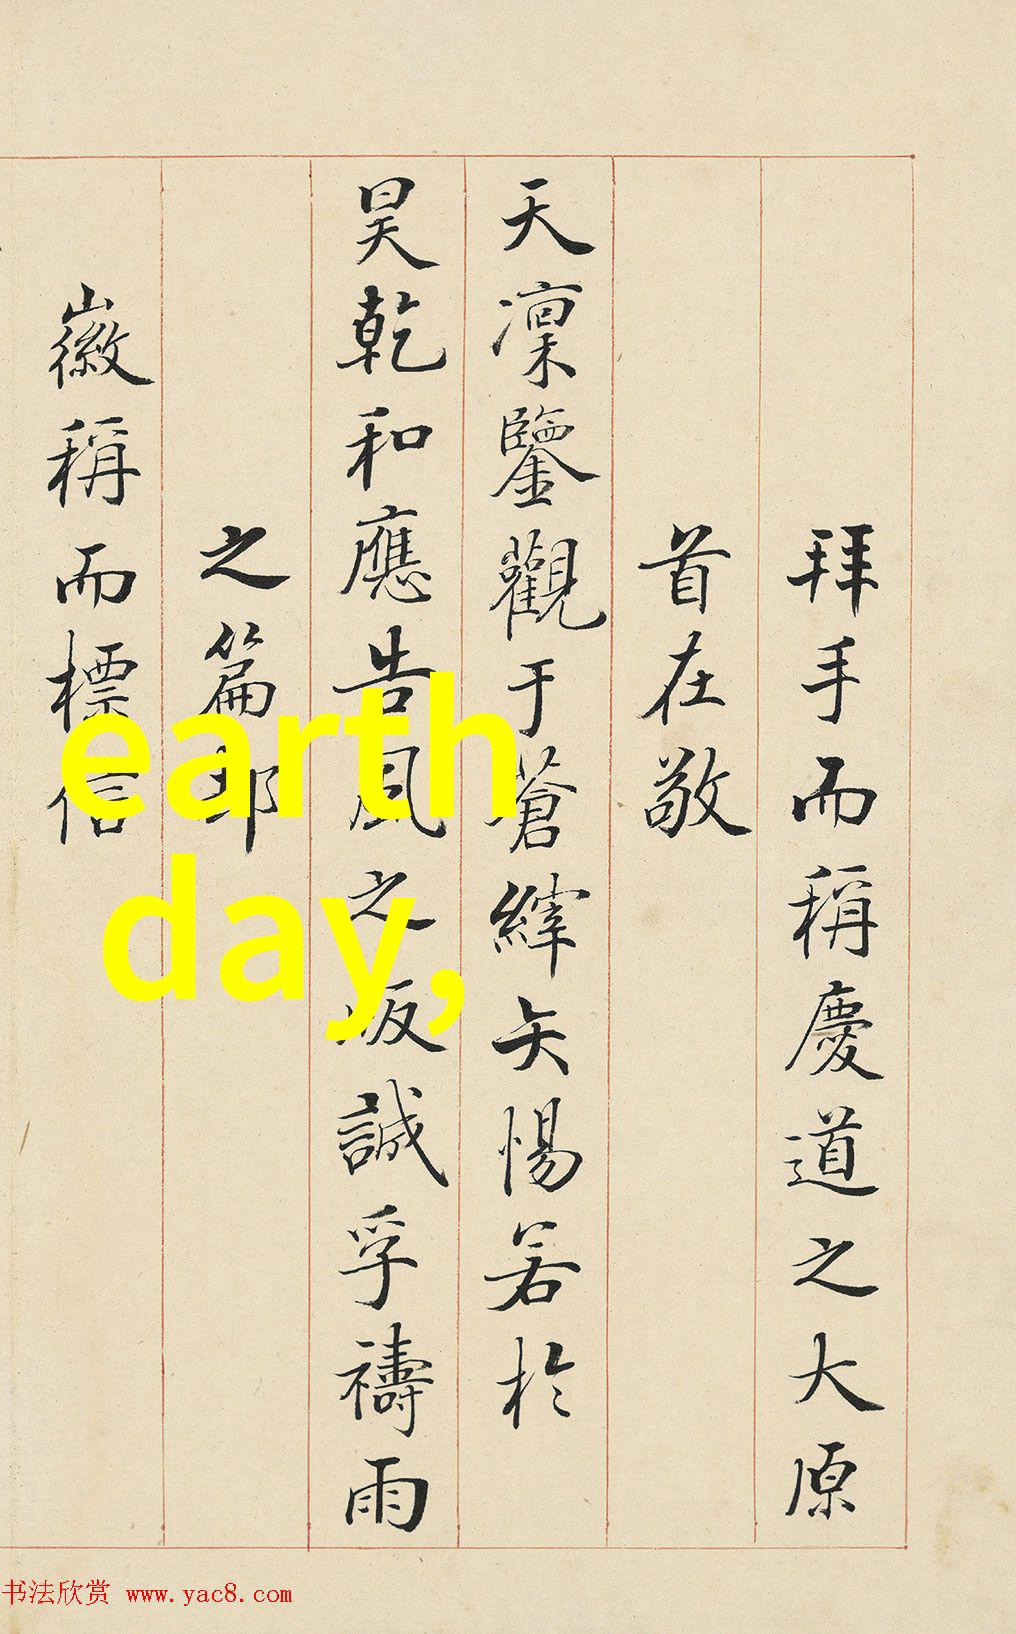 拜手而稱慶道之大原
首在敬
天凜鑒觀于蒼緯矢惕若於
昊乾和應告風之坂誠孚禱雨
之篇却
徽稱而標信
earth
day,
书法欣赏 www.yac8.com